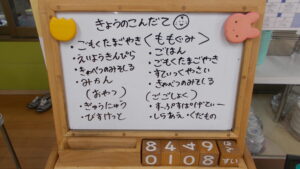 きょうのこんだて
・ごもくたまごやき
・えいようきんぴら
・きゃべつのみそしる
・みかん
(おやつ)
・ぎゅうにゅう
・びすけっと
<ももぐみ>
・ごはん
・ごもくたまごやき
・すてぃっくやさい
・きゃべつのみそしる
(ごごしょく)
・しらあえ・くだもの
8449
0108